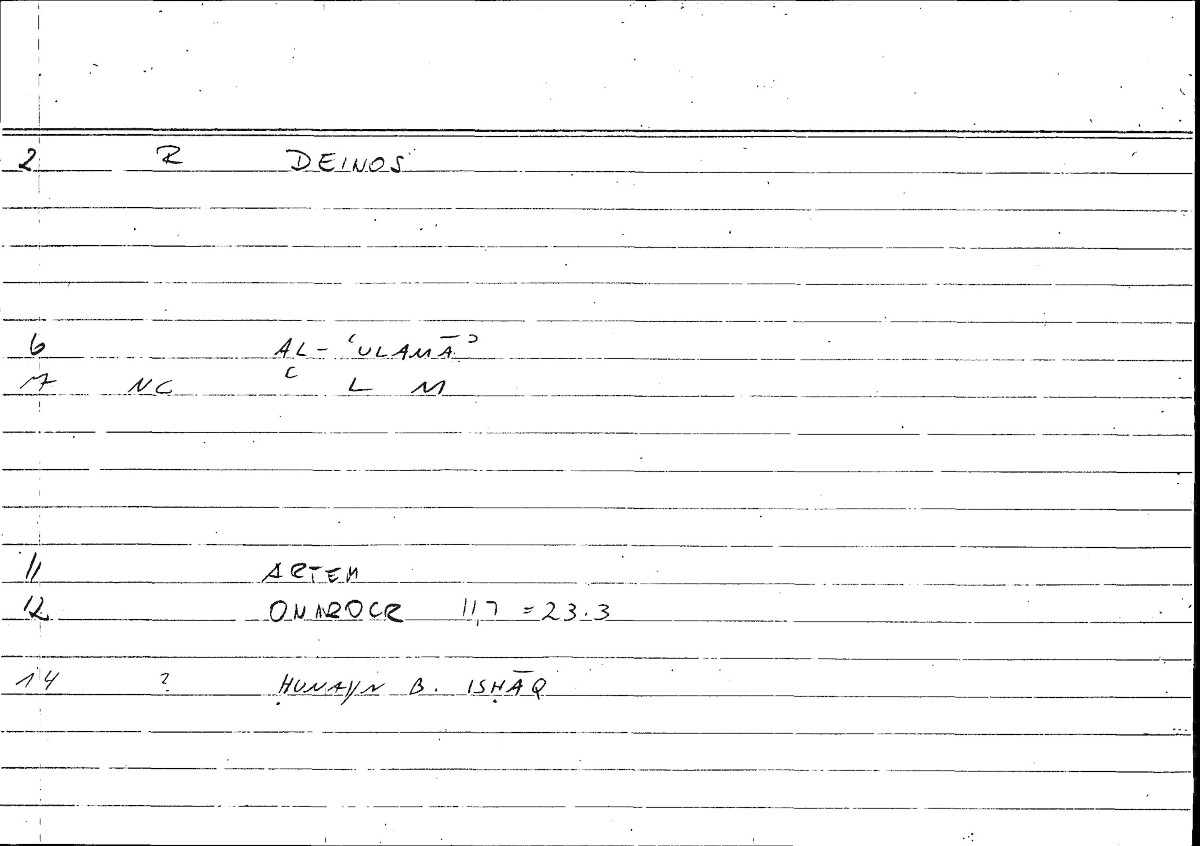 2 R DEINOS
6 AL-ʿULAMĀʾ
7 NC ʿ L M
11 ARTEM
12 ONIROCR 11,7 = 23.3
14 ? ḤUNAYN B. ISḤĀQ